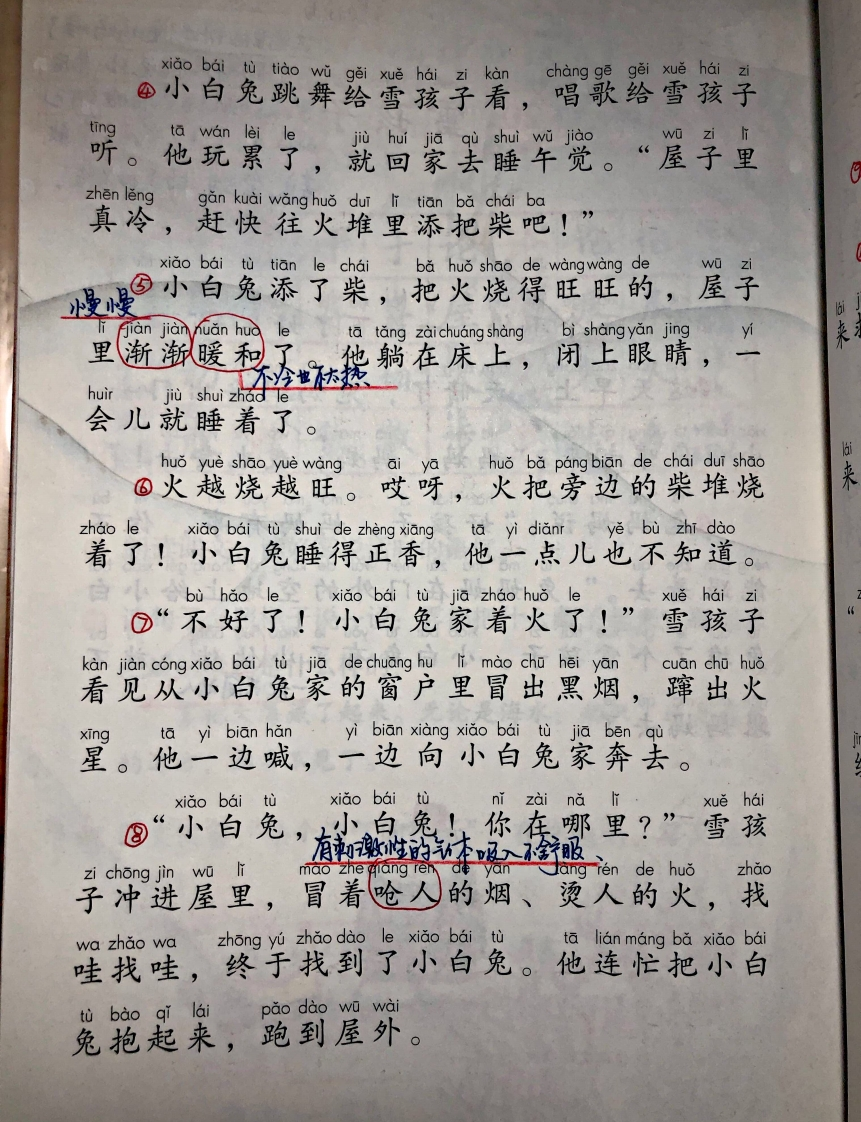 xiǎo bái tù tiào wǔ gěi xuě hái zi kàn chàng gē gěi xuě hái zi
④小白兔跳舞给雪孩子看，唱歌给雪孩子
tīng tā wán lèi le jiù huí jiā qù shuì wǔ jiào wū zi lǐ
听。他玩累了，就回家去睡午觉。“屋子里
zhēn lěng gǎn kuài wǎng huǒ duī lǐ tiān bǎ chái ba
真冷，赶快往火堆里添把柴吧！”
xiǎo bái tù tiān le chái bǎ huǒ shāo de wàng wàng de wū zi
⑤小白兔添了柴，把火烧得旺旺的，屋子
慢慢
lǐ jiàn jiàn nuǎn huo le tā tǎng zài chuáng shàng bì shàng yǎn jing yí
里渐渐暖和了。他躺在床上，闭上眼睛，一
不冷也不太热
huìr jiù shuì zháo le
会儿就睡着了。
huǒ yuè shāo yuè wàng āi yā huǒ bǎ páng biān de chái duī shāo
⑥火越烧越旺。哎呀，火把旁边的柴堆烧
zháo le xiǎo bái tù shuì de zhèng xiāng tā yì diǎnr yě bù zhī dào
着了！小白兔睡得正香，他一点儿也不知道。
bù hǎo le xiǎo bái tù jiā zháo huǒ le xuě hái zi
⑦“不好了！小白兔家着火了！”雪孩子
kàn jiàn cóng xiǎo bái tù jiā de chuāng hu lǐ mào chū hēi yān cuān chū huǒ
看见从小白兔家的窗户里冒出黑烟，蹿出火
xīng tā yì biān hǎn yì biān xiàng xiǎo bái tù jiā bēn qù
星。他一边喊，一边向小白兔家奔去。
xiǎo bái tù xiǎo bái tù nǐ zài nǎ lǐ xuě hái
⑧“小白兔，小白兔！你在哪里？”雪孩
有刺激性的气体吸入不舒服、
zi chōng jìn wū lǐ mào zhe qiàng rén de yān tàng rén de huǒ zhǎo
子冲进屋里，冒着呛人的烟、烫人的火，找
wa zhǎo wa zhōng yú zhǎo dào le xiǎo bái tù tā lián máng bǎ xiǎo bái
哇找哇，终于找到了小白兔。他连忙把小白
tù bào qǐ lái pǎo dào wū wài
兔抱起来，跑到屋外。
lái
来
lái
来